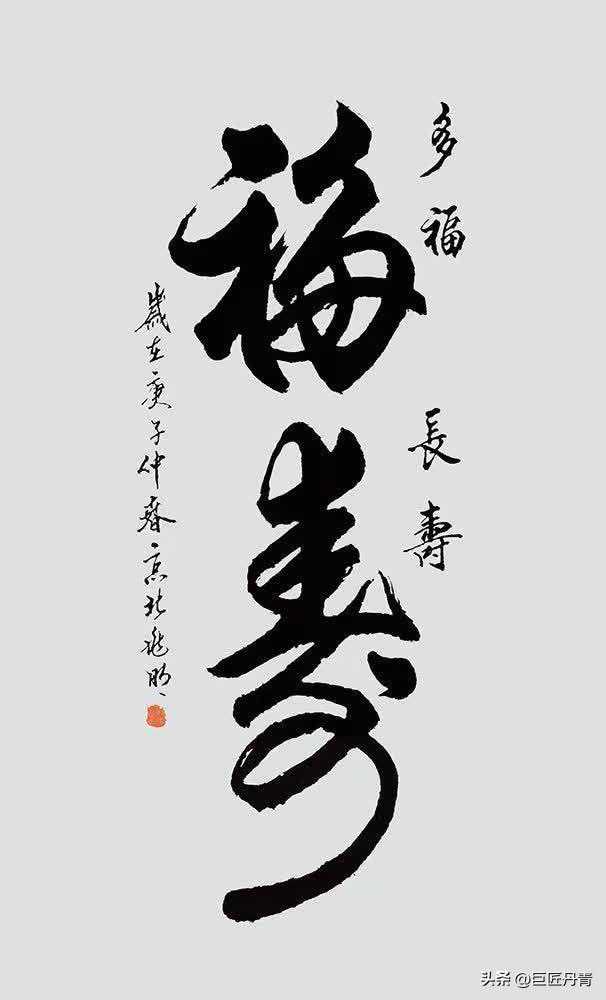 多福 長壽
福壽
歲在庚子仲春京北兆明
头条 @巨匠丹青